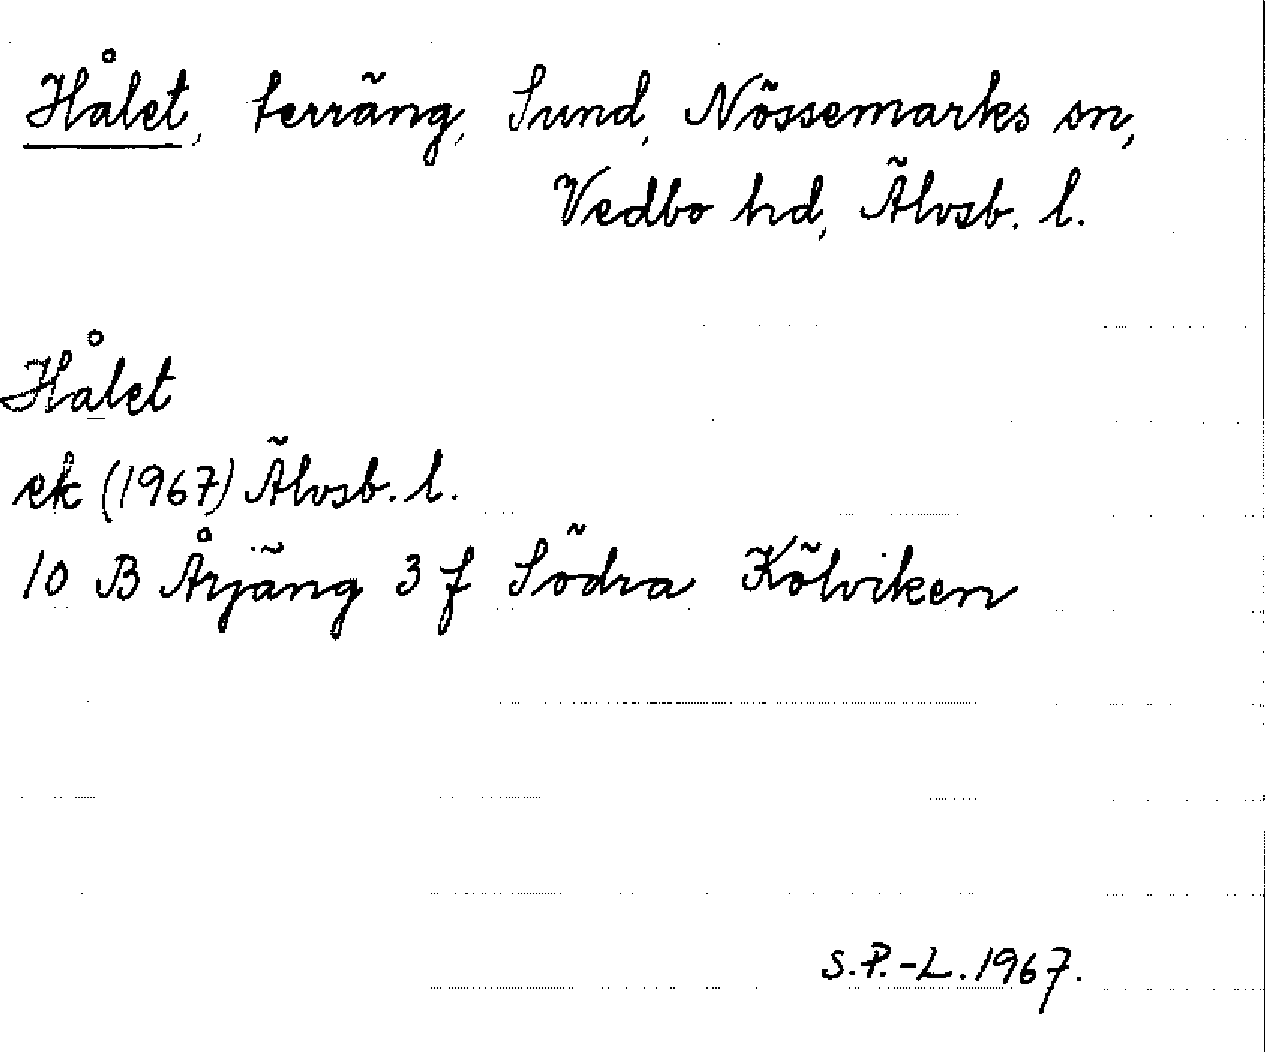 Hålet, terräng, Sund, Nössemarks sn,
Vedbo hd, Älvsb. l.
Hålet
ek (1967) Älvsb. l.
10 B Årjäng 3 f Södra Kölviken
S.P.-L. 1967.